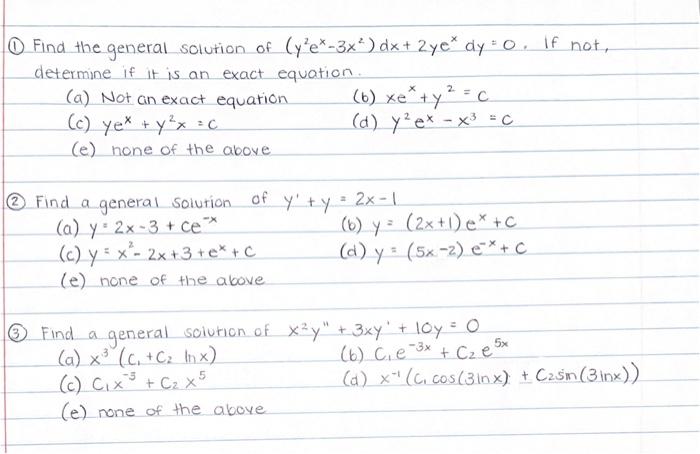 ① Find the general solution of (y²eˣ-3x²)dx + 2yeˣ dy = 0. If not,
determine if it is an exact equation.
(a) Not an exact equation (b) xeˣ + y² = c
(c) yeˣ + y²x = c (d) y²eˣ - x³ = c
(e) none of the above
② Find a general solution of y' + y = 2x - 1
(a) y = 2x - 3 + ce⁻ˣ (b) y = (2x+1)eˣ + C
(c) y = x² - 2x + 3 + eˣ + C (d) y = (5x - 2)e⁻ˣ + C
(e) none of the above
③ Find a general solution of x²y" + 3xy' + 10y = 0
(a) x³(C₁ + C₂ lnx) (b) C₁e⁻³ˣ + C₂e⁵ˣ
(c) C₁x⁻³ + C₂x⁵ (d) x⁻¹(C₁ cos(3lnx) + C₂sin(3lnx))
(e) none of the above